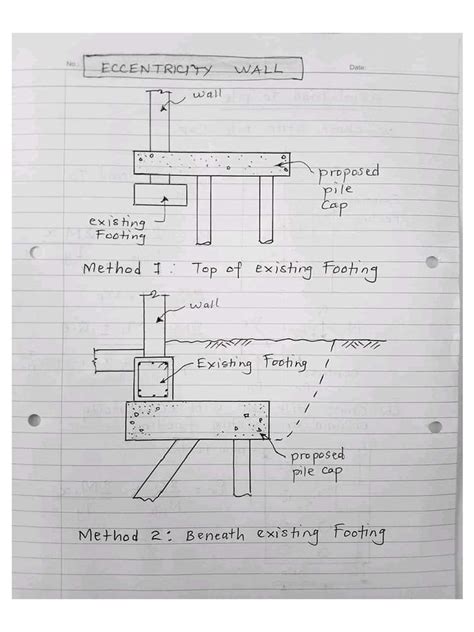 No.
Date:
ECCENTRICITY WALL
wall
proposed
pile
Cap
existing
Footing
Method 1: Top of existing Footing
wall
Existing Footing
proposed
pile cap
Method 2: Beneath existing Footing